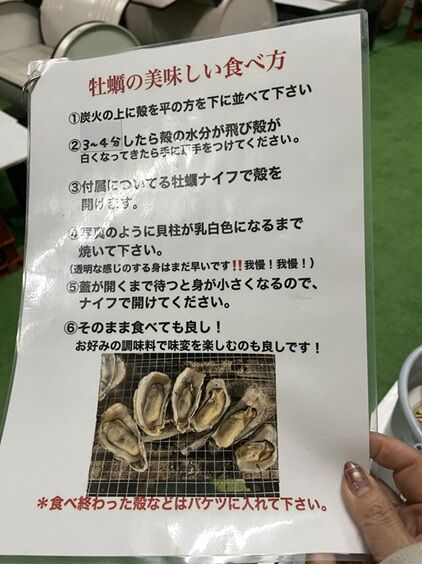 牡蠣の美味しい食べ方
①炭火の上に殻を平の方を下に並べて下さい
②3〜4分したら殻の水分が飛び殻が
白くなってきたら手に軍手をつけてください。
③付属についてる牡蠣ナイフで殻を
開けます。
④写真のように貝柱が乳白色になるまで
焼いて下さい。
(透明な感じのする身はまだ早いです‼我慢！我慢！)
⑤蓋が開くまで待つと身が小さくなるので、
ナイフで開けてください。
⑥そのまま食べても良し！
お好みの調味料で味変を楽しむのも良しです！
＊食べ終わった殻などはバケツに入れて下さい。